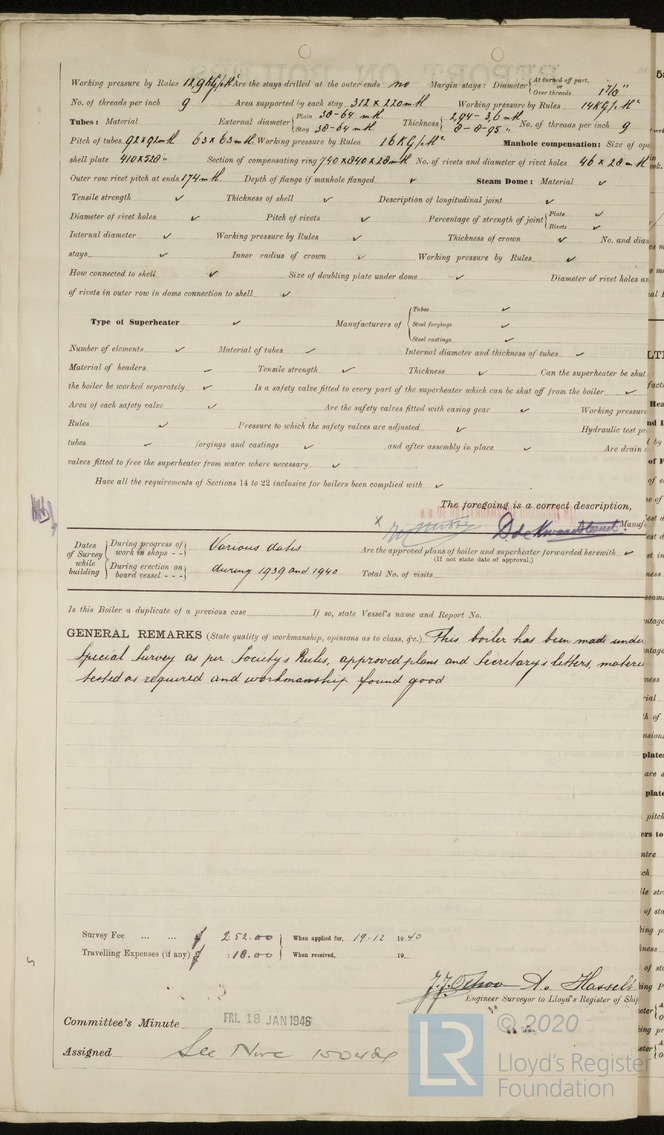 Working pressure by Rules 12,9 KG/M² Are the stays drilled at the outer ends no Margin stays: Diameter { At turned off part, or Over threads 1 7/16"
No. of threads per inch 9 Area supported by each stay 312 x 220 m/m Working pressure by Rules 14 KG/M²
Tubes: Material External diameter { Plain 38-64 m/m Stay 38-64 m/m Thickness { 2,94-3,6 m/m 8-8-95 " No. of threads per inch 9
Pitch of tubes 92x92 m/m 63x63 m/m Working pressure by Rules 16 KG/M² Manhole compensation: Size of
shell plate 410x528 " Section of compensating ring 740x840x28 m/m No. of rivets and diameter of rivet holes 46 x 28 m/m
Outer row rivet pitch at ends 174 m/m Depth of flange if manhole flanged ✓ Steam Dome: Material ✓
Tensile strength ✓ Thickness of shell ✓ Description of longitudinal joint ✓
Diameter of rivet holes ✓ Pitch of rivets ✓ Percentage of strength of joint { Plate ✓ Rivets ✓
Internal diameter ✓ Working pressure by Rules ✓ Thickness of crown ✓ No. and
stays ✓ Inner radius of crown ✓ Working pressure by Rules ✓
How connected to shell ✓ Size of doubling plate under dome ✓ Diameter of rivet holes
of rivets in outer row in dome connection to shell ✓
Type of Superheater ✓ Manufacturers of { Tubes ✓ Steel forgings ✓ Steel castings ✓
Number of elements ✓ Material of tubes ✓ Internal diameter and thickness of tubes ✓
Material of headers ✓ Tensile strength ✓ Thickness ✓ Can the superheater be shut
the boiler be worked separately ✓ Is a safety valve fitted to every part of the superheater which can be shut off from the boiler ✓
Area of each safety valve ✓ Are the safety valves fitted with easing gear ✓ Working pressure
Rules ✓ Pressure to which the safety valves are adjusted ✓ Hydraulic test
tubes ✓ forgings and castings ✓ and after assembly in place ✓ Are drain
valves fitted to free the superheater from water where necessary ✓
Have all the requirements of Sections 14 to 22 inclusive for boilers been complied with ✓
The foregoing is a correct description,
Dates of Survey while building { During progress of work in shops - - Various dates
During erection on board vessel - - - during 1939 and 1940
Are the approved plans of boiler and superheater forwarded herewith ✓
(If not state date of approval.)
Total No. of visits
Is this Boiler a duplicate of a previous case If so, state Vessel's name and Report No.
GENERAL REMARKS (State quality of workmanship, opinions as to class, &c.) This boiler has been made under
Special Survey as per Society's Rules, approved plans and Secretary's letters,
tested as required and workmanship found good
Survey Fee ... ... ƒ 252.00 When applied for, 19.12 1940
Travelling Expenses (if any) ƒ :18.00 When received, 19
Engineer Surveyor to Lloyd's Register of
Committee's Minute FRI. 18 JAN 1946
Assigned See
© 2020
LR
Lloyd's Register
Foundation